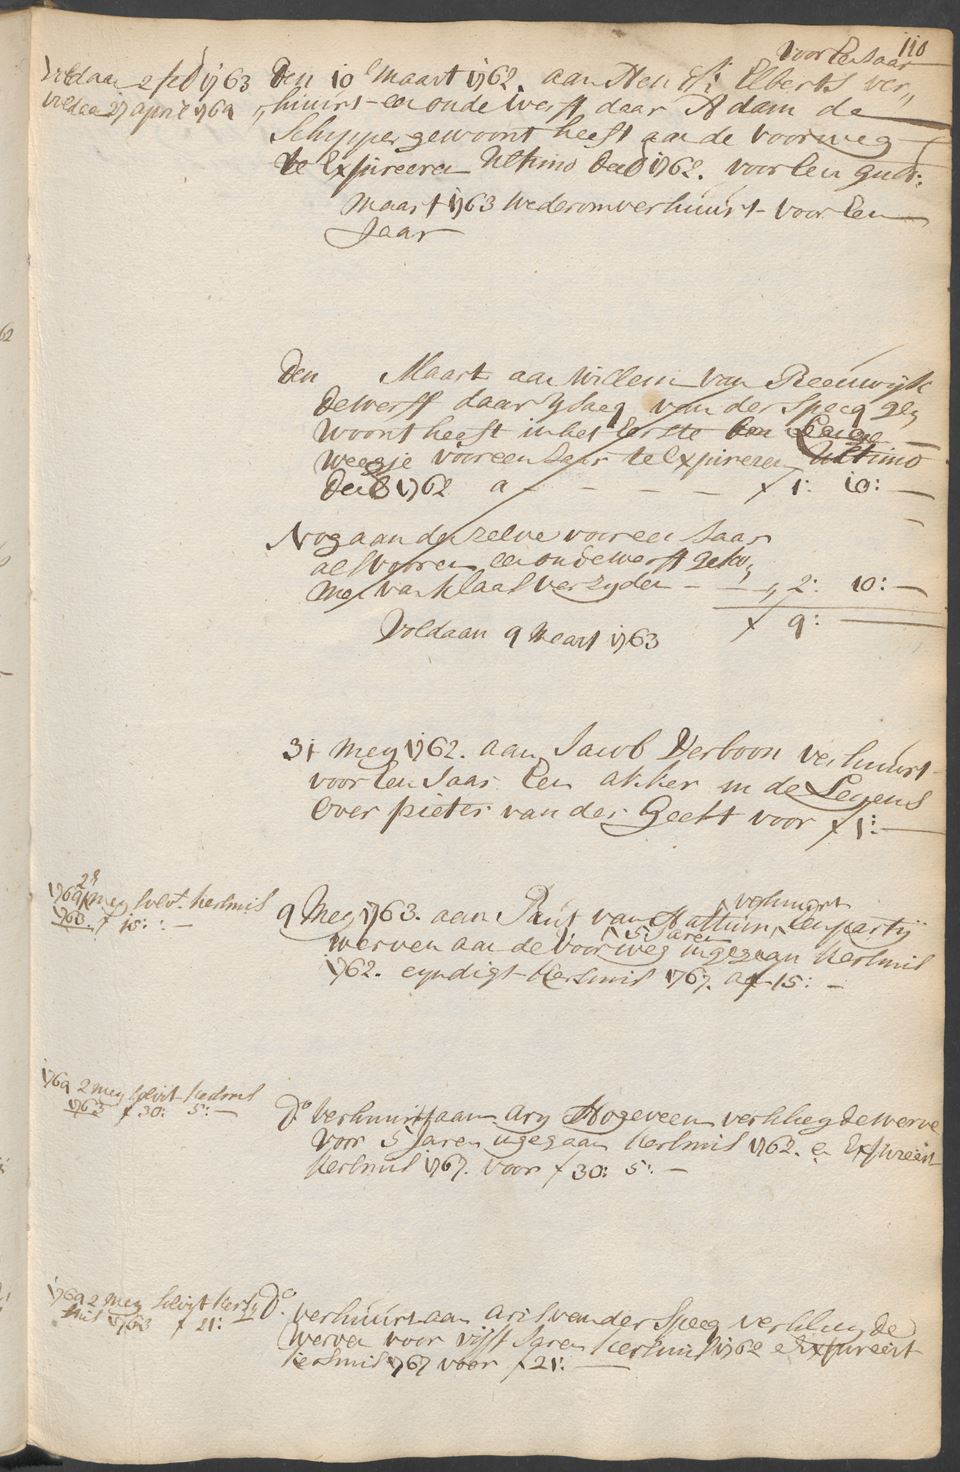 110
voor Een Jaar
Voldaan 2 feb 1763
voldaan 27 april 1764
Den 10 maart 1762. aan Hen Elberts ver„
„huurt een oude werff daar Adam de
Schipper gewoont heeft aan de voorweg
te Expireeren Ultimo Dec 1762. voor Een guld:
maart 1763 wederom verhuurt voor Een
Jaar
Den Maart aan Willem van Reeuwijk
de werff daar van der Specq ge„
woont heeft in het Eerste
weegje voor een Jaar te Expireren Ultimo
Dec 1762 a - - - - f 1: 10: —
Nog aan den zelve voor een Jaar
als vooren een oude werff geko„
men van Klaas Verzyden - — „ 2: 10: —
f 9: —
Voldaan 9 Maart 1763
31 Mey 1762. aan Jacob Verboon verhuurt
voor Een Jaar Een akker in de Leyens
Over pieter van der Geest voor f 1: —
1764 28 mey solvt. Kersmis
1763. f 15: : —
9 Mey 1763. aan Paul van Hattum verhuurt Een partij
werven aan de voorweg 5 Jaren ingegaan Kersmis
1762. eyndigt Kersmis 1767. a f 15: —
1764 2 mey solvit Kersmis
1763 f 30: 5: —
Do. verhuurt aan Ary Hogeveen de werve
voor 5 Jaren ingegaan Kersmis 1762. en Expireert
Kersmis 1767. voor f 30: 5: —
1764 2 mey solvit Kers„
mis 1763 f 21:
Do. verhuurt aan Aris van der Specq de
werven voor vijff Jaren Kersmis 1762 Expireert
Kersmis 1767 voor f 21: —